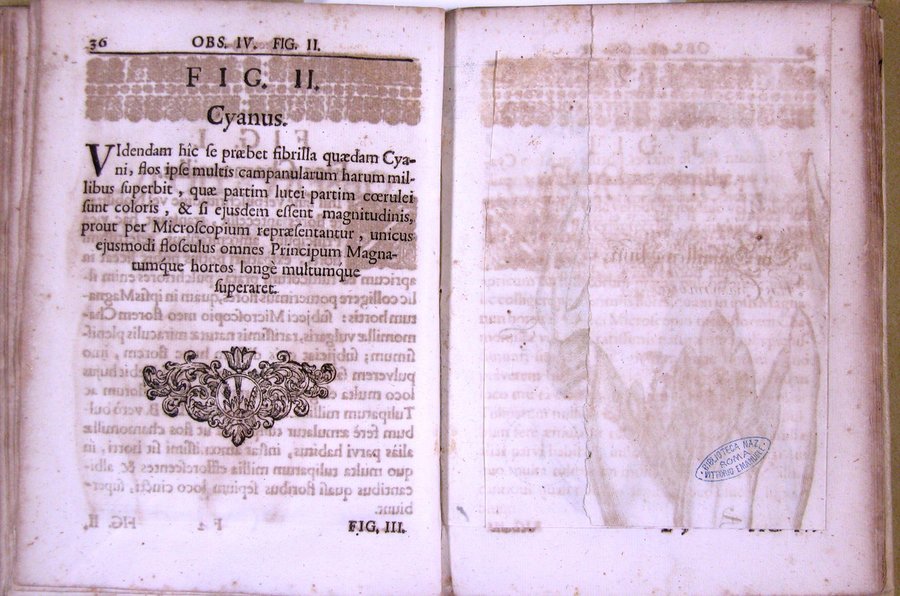 36
OBS. IV. FIG. II.
FIG. II.
Cyanus.
VIdendam hîc se præbet fibrilla quædam Cya-
ni, flos ipse multis campanularum harum mil-
libus superbit, quæ partim lutei partim cœrulei
sunt coloris, & si ejusdem essent magnitudinis,
prout per Microscopium repræsentantur, unicus
ejusmodi flosculus omnes Principum Magna-
tumque hortos longè multumque
superaret.
FIG. III.
BIBLIOTECA NAZ.
ROMA
VITTORIO EMANUELE